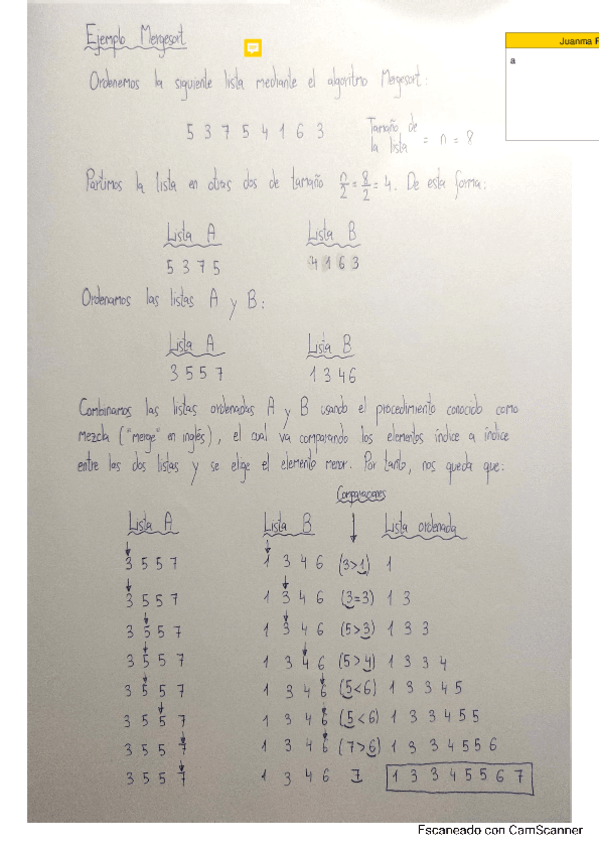 Ejemplo Mergesort
Juanma F
a
Ordenemos la siguiente lista mediante el algoritmo Mergesort:
5 3 7 5 4 1 6 3 Tamaño de la lista = n = 8
Partimos la lista en otras dos de tamaño n/2 = 8/2 = 4. De esta forma:
Lista A Lista B
5 3 7 5 4 1 6 3
Ordenamos las listas A y B:
Lista A Lista B
3 5 5 7 1 3 4 6
Combinamos las listas ordenadas A y B usando el procedimiento conocido como
mezcla ("merge" en inglés), el cual va comparando los elementos índice a índice
entre las dos listas y se elige el elemento menor. Por tanto, nos queda que:
Comparaciones
Lista A Lista B ↓ Lista ordenada
3 5 5 7 1 3 4 6 (3>1) 1
3 5 5 7 1 3 4 6 (3=3) 1 3
3 5 5 7 1 3 4 6 (5>3) 1 3 3
3 5 5 7 1 3 4 6 (5>4) 1 3 3 4
3 5 5 7 1 3 4 6 (5<6) 1 3 3 4 5
3 5 5 7 1 3 4 6 (5<6) 1 3 3 4 5 5
3 5 5 7 1 3 4 6 (7>6) 1 3 3 4 5 5 6
3 5 5 7 1 3 4 6 7 1 3 3 4 5 5 6 7
Escaneado con CamScanner